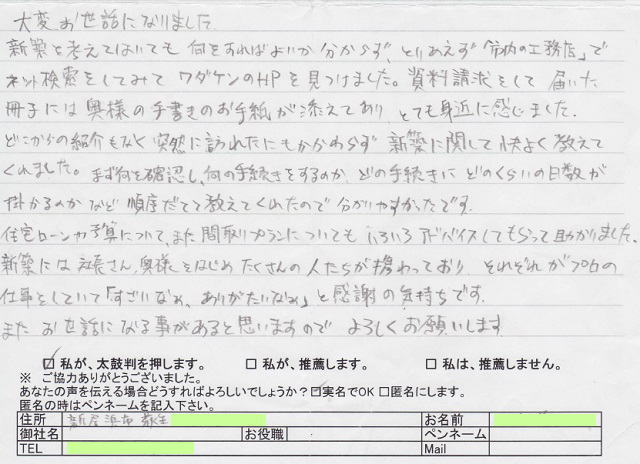 大変お世話になりました。
新築を考えてはいても何をすればよいか分からず、とりあえず「市内の工務店」で
ネット検索をしてみてワダケンのHPを見つけました。資料請求をして届いた
冊子には奥様の手書きのお手紙が添えてあり、とても身近に感じました。
どこからの紹介もなく突然に訪れたにもかかわらず新築に関して快よく教えて
くれました。まず何を確認し、何の手続きをするのか、どの手続きにどのくらいの日数が
掛かるのかなど順序だてて教えてくれたので分かりやすかったです。
住宅ローンや予算について、また間取りプランについてもいろいろアドバイスしてもらって助かりました。
新築には社長さん、奥様をはじめたくさんの人たちが携わっており、それぞれがプロの
仕事をしていて「すごいなぁ、ありがたいなぁ」と感謝の気持ちです。
またお世話になる事があると思いますのでよろしくお願いします
☑ 私が、太鼓判を押します。 □ 私が、推薦します。 □ 私は、推薦しません。
※ ご協力ありがとうございました。
あなたの声を伝える場合どうすればよろしいでしょうか？☑実名でOK □匿名にします。
匿名の時はペンネームを記入下さい。
住所 新居浜市 お名前
御社名 お役職 ペンネーム
TEL Mail